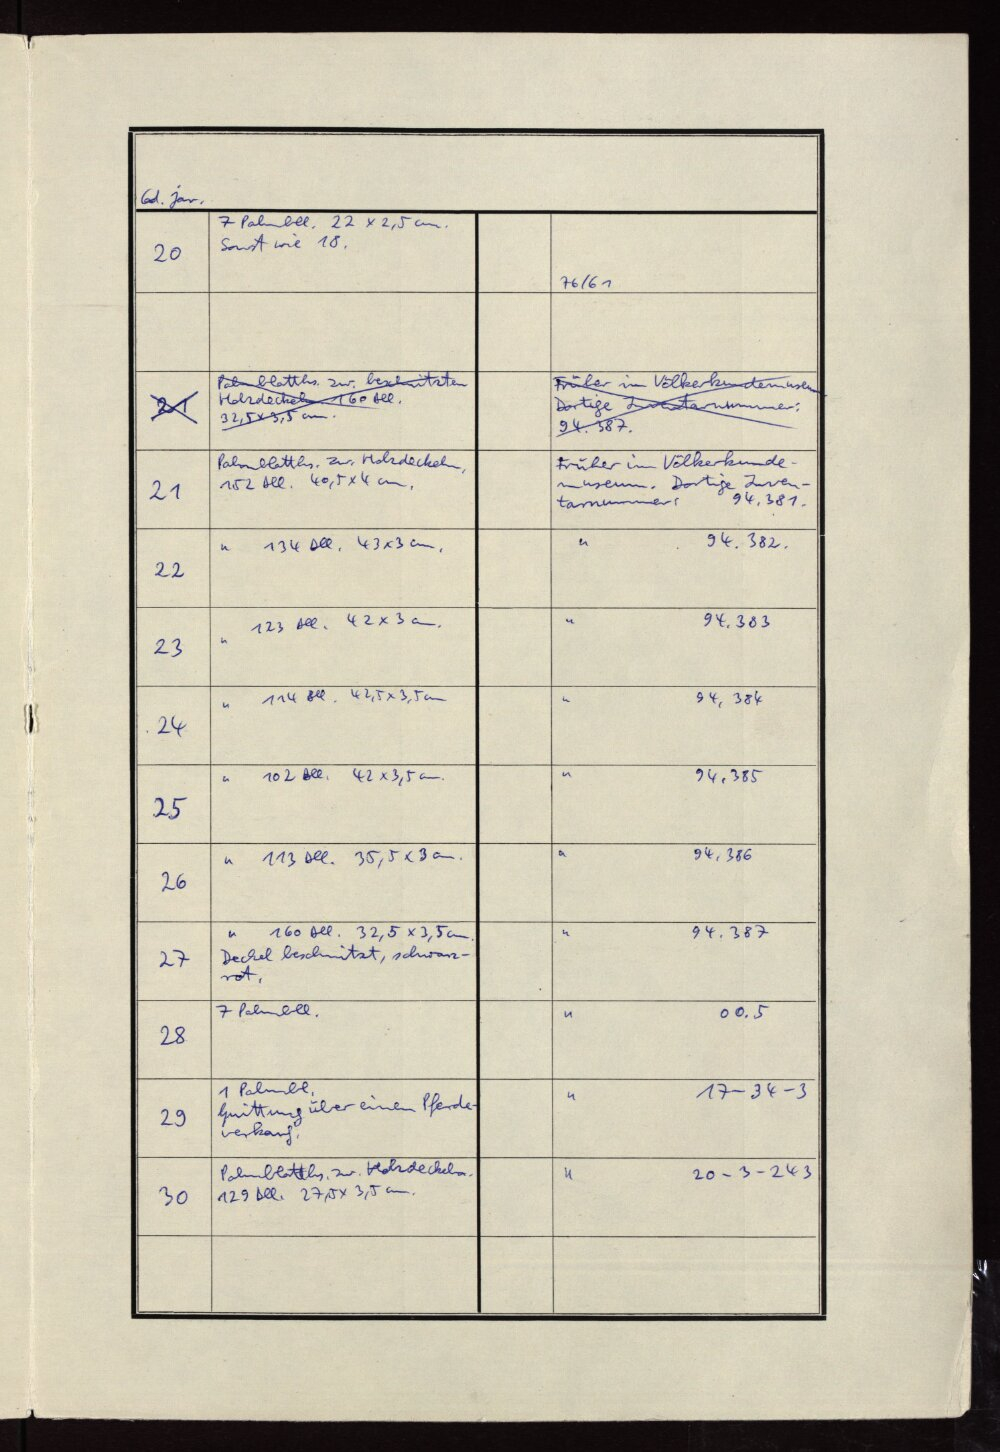 Cod. jav.
20
7 Palmbll. 22 x 2,5 cm.
Sonst wie 18.
76/61
21
Palmblatths. zw. beschnitzten
Holzdeckeln 160 Bll.
32,5 x 3,5 cm.
Früher im Völkerkundemuseum
Dortige Inventarnummer:
94.387.
21
Palmblatths. zw. Holzdeckeln,
152 Bll. 40,5 x 4 cm.
Früher im Völkerkunde-
museum. Dortige Inven-
tarnummer: 94.381.
22
" 134 Bll. 43 x 3 cm.
" 94.382.
23
" 123 Bll. 42 x 3 cm.
" 94.383
24
" 114 Bll. 42,5 x 3,5 cm
" 94.384
25
" 102 Bll. 42 x 3,5 cm.
" 94.385
26
" 113 Bll. 35,5 x 3 cm.
" 94.386
27
" 160 Bll. 32,5 x 3,5 cm.
Deckel beschnitzt, schwarz-
rot.
" 94.387
28
7 Palmbll.
" 00.5
29
1 Palmbl.
Quittung über einen Pferde-
verkauf.
" 17-34-3
30
Palmblatths. zw. Holzdeckeln.
129 Bll. 27,5 x 3,5 cm.
" 20-3-243